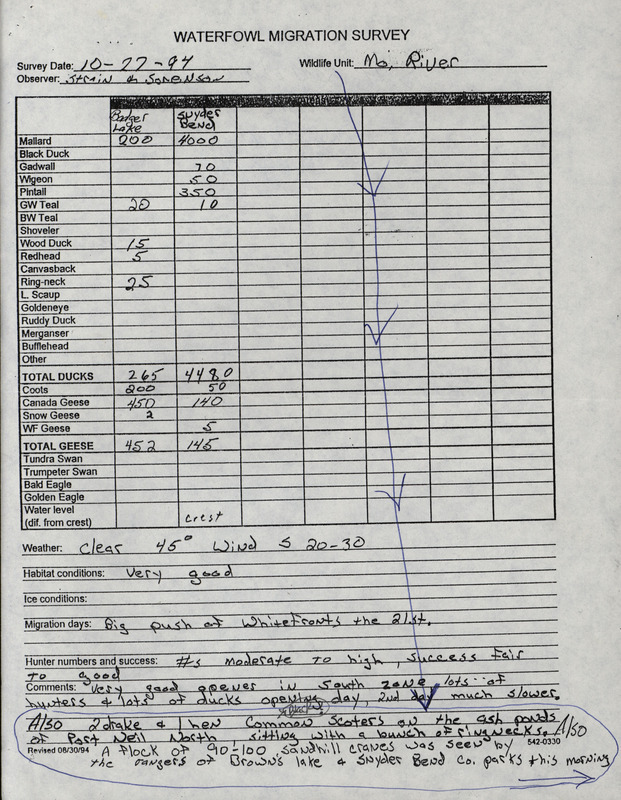 WATERFOWL MIGRATION SURVEY
Survey Date: 10-27-94 Wildlife Unit: Mo, River
Observer: Strain & Sorenson
Badger Lake Snyder Bend
Mallard 200 4000
Black Duck
Gadwall 70
Wigeon 50
Pintail 350
GW Teal 20 10
BW Teal
Shoveler
Wood Duck 15
Redhead 5
Canvasback
Ring-neck 25
L. Scaup
Goldeneye
Ruddy Duck
Merganser
Bufflehead
Other
TOTAL DUCKS 265 4480
Coots 200 50
Canada Geese 450 140
Snow Geese 2
WF Geese 5
TOTAL GEESE 452 145
Tundra Swan
Trumpeter Swan
Bald Eagle
Golden Eagle
Water level
(dif. from crest) crest
Weather: Clear 45° Wind S 20-30
Habitat conditions: Very good
Ice conditions:
Migration days: Big push of Whitefronts the 21st.
Hunter numbers and success: #s moderate to high, success fair
to good
Comments: Very good opener in South zone lots of
hunters & lots of ducks opening day, 2nd day much slower.
Also 2 drake & 1 hen Common (Black) Scoters on the ash ponds
of Port Neil North sitting with a bunch of ringnecks. Also
Revised 08/30/94 A flock of 90-100 sandhill cranes was seen by 542-0330
the rangers of Brown's lake & Snyder Bend Co. parks this morning